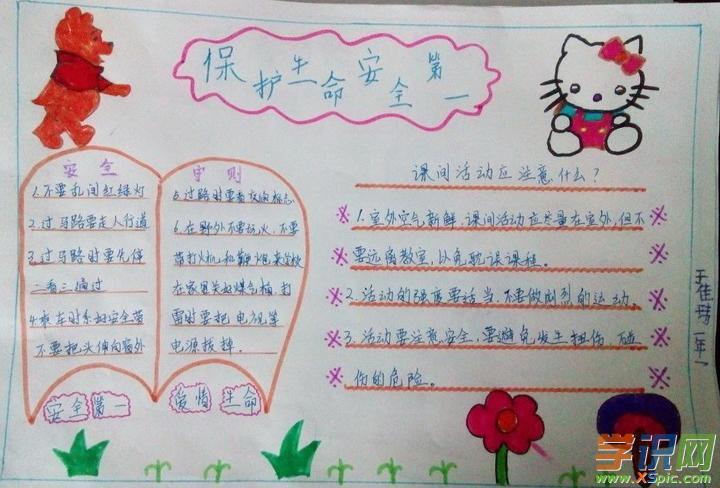 保护生命安全第一
安全 守则
1.不要乱闯红绿灯
2.过马路要走人行道
3.过马路时要先停
一看三通过
4.乘车时系好安全带
不要把头伸向窗外
5.过路时要看交通标志
6.在野外不要玩火,不要
带打火机和鞭炮来学校
在家里关好煤气桶,打
雷时要把电视等
电源拔掉。
安全第一
爱惜生命
课间活动应注意什么?
1.室外空气新鲜,课间活动应尽量在室外,但不
要远离教室,以免耽误课程。
2.活动的强度要适当,不要做剧烈的运动。
3.活动要注意安全,要避免发生扭伤、碰
伤的危险。
二年一
学识网
www.XSpic.com